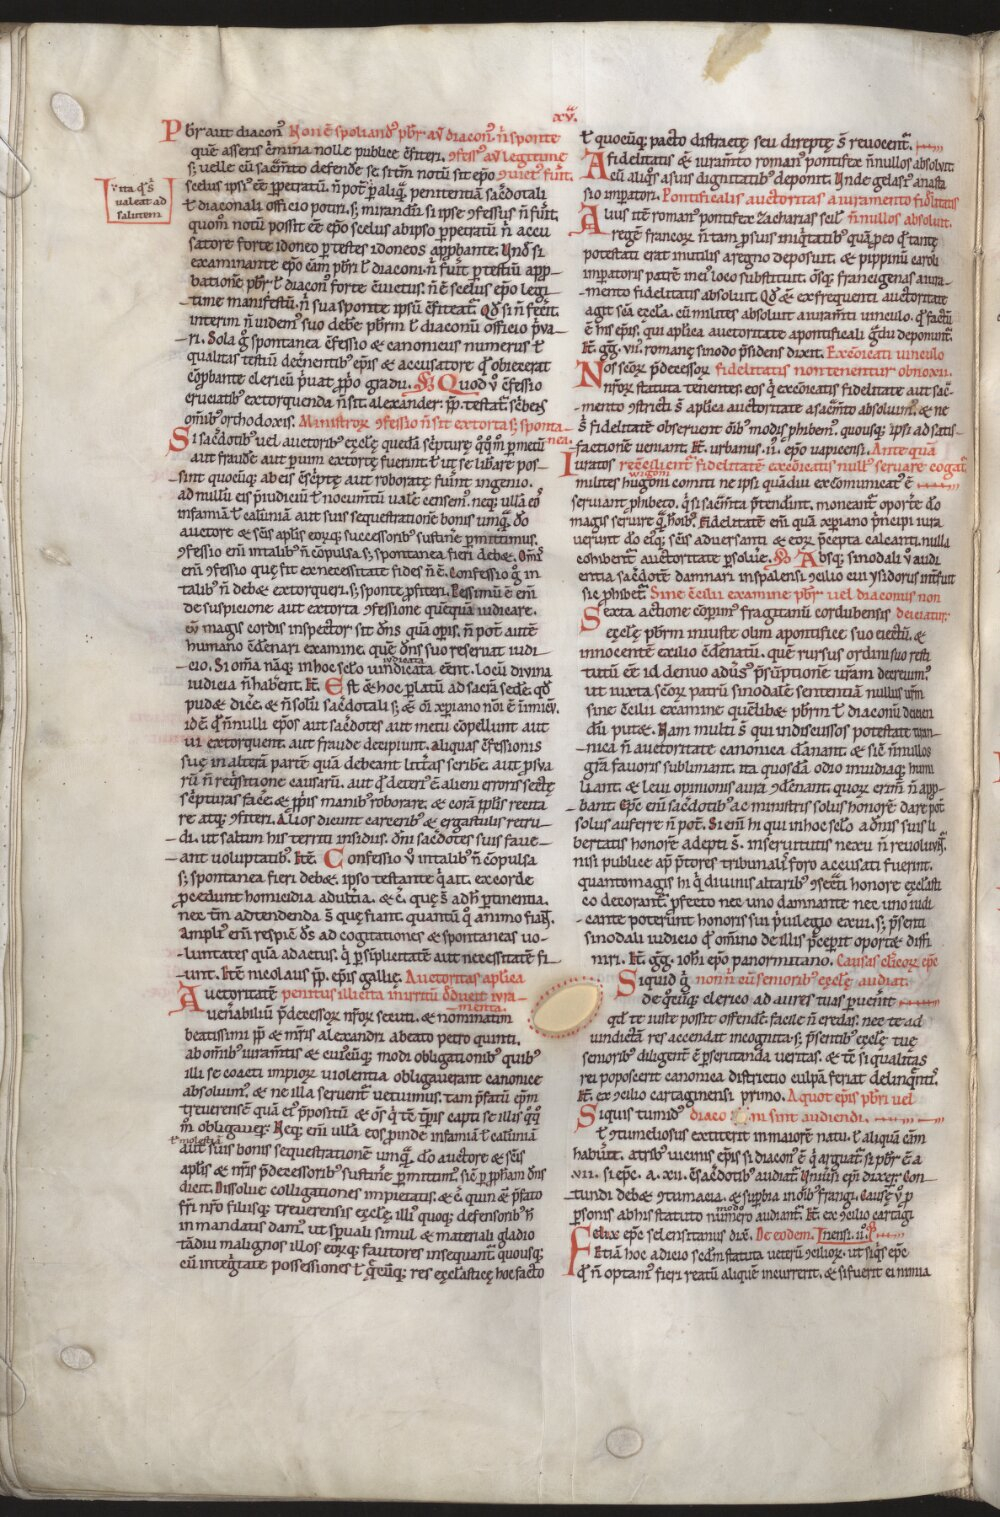 xv.
Pbr̄ aut diacon᷒ Non ē spoliand᷒ pbr̄ aū diacon᷒. n̄ sponte
que asseris c̄mina nolle publice c̄fiteri. ꝯfess᷒ aū legitime
s; uelle eū sac̄mto defende se. si tm̄ notū sit epō ꝯuict᷒ fuīt.
scelus ipsū ee ꝑpetratū. n̄ pot̄ ꝑ aliq̄ penitentiā sac̄dotali
ł diaconali officio potiri. s; mirandū si ipse ꝯfessus n̄ fuīt.
quom̊ notū possit ēe epō scelus ab ipso ꝑpetratū n̄ accu
satore forte idoneo ꝑ testes idoneos app̄bante. Unđ si
examinante epō eām pbr̄i ł diaconi. n̄ fuīt ꝑ testiū app̄-
batione pbr̄ ł diacon᷒ forte c̄uictus. n̄ ē scelus epō legi
time manifestū. n̄ sua sponte ipsū c̄fiteat̄. Qđ si n̄ fec̄it.
interim n̄ uidem᷒ suo debe pbr̄m ł diaconū officio p̄va-
ri. Sola g̊ spontanea c̄fessio & canonicus numerus ł
qualitas testiū dec̄nentib᷒ epis & accusatore qđ obiecerat
cōp̄bante clericū p̄uat ꝓpo gradu. Quod ů c̄fessio
cruciatib᷒ extorquenda n̄ sit. alexander. pp̄. testat̄. sc̄bens
om̄ib᷒ orthodoxis. Ministror̄ ꝯfessio n̄ sit extorta s; sponta-
nea.
Si sac̄dotib᷒ uel auctorib᷒ ęccłę quedā sc̄pturę q̊q̊ m̊ ꝑ metū
aut fraude aut ꝑ uim extortę fuerint. ł ut se libare pos-
sint quocūq; ab eis c̄sc̄ptę aut roboratę fuīnt ingenio.
ad nullū eis p̄iudiciū ł nocumtū uale censem᷒. neq; ullā eos
infamiā ł calūniā aut suis sequestratione bonis umq̄. đo
auctore & sc̄is aplis eorq; successorib᷒ sustine ꝑmittimus.
ꝯfessio eni in talib᷒ n̄ cōpulsa s; spontanea fieri deb&. Om̄s
eni ꝯfessio que fit ex necessitate fides n̄ ē. Confessio g̊ in
talib᷒ n̄ deb& extorqueri. s; sponte ꝓfiteri. Pessimū ē eni
de suspicione aut extorta ꝯfessione quēquā iudicare.
cū magis cordis inspector sit dn̄s quā opis. n̄ pot̄ autē
humano c̄dēnari examine. que dn̄s suo reseruat iudi-
cio. Si om̄a naq; in hoc sclo uindicata eent. locū diuina
iudicata
iudicia n̄ habent. Ite. Est & hoc ꝑlatū ad sacrā sedē. qđ
pud& dicē. & n̄ solū sac̄dotali s; & oī xp̄iano noī ē inimicū.
id ē qđ n̄nulli epos aut sac̄dotes aut metu cōpellunt aut
ui extorquent. aut fraude decipiunt. aliquas c̄fessionis
suę in alterā partē quā debeant litt̄as scribe. aut ꝑ sua
rū n̄ req̇sitione causarū. aut qđ deter᷒ ē alieni erroris sectę
sc̄pturas face. & ꝓpis manib᷒ roborare. & corā pplis recita
re atq; ꝯfiteri. Alios dicunt carcerib᷒ & ergastulis retru-
di. ut saltim his territi insidiis. dn̄i sac̄dotes suis faue-
ant uoluptatib᷒. Ite. Confessio ů in talib᷒ n̄ cōpulsa
s; spontanea fieri deb&. ipso testante q̇ ait. ex corde
ꝓcedunt homicidia adultia. & c̄. quę s̄ ad h̄ ptinentia.
nec tm̄ adtendenda s̄ quę fiant. quantū q̊ animo fiant.
Ampli᷒ eni respic̄ đs ad cogitationes & spontaneas uo-
luntates quā ad actus. q̇ ꝑ simplicitatē aut necessitatē fi-
unt. Ite nicolaus pp̄. epis gallię. Auctoritas aplica
Auctoritatem penitus illicita in irritū dđucit iura-
menta.
uen̄abiliū p̄decessor̄ nr̄or secuti. & nominatim
beatissimi pp̄ & mr̄is alexandri a beato petro quinti.
ab om̄ib᷒ iuram̄tis & cui᷒cūq; modi obligationib᷒ quib᷒
illi se coacti impior̄ uiolentia obligauerant canonice
absoluim᷒. & ne illa seruent uetuimus. tam p̄fatū epm̄
treuerensē quā ei᷒ p̄positū & oēs q̇ tē tp̄is capti se illis q̊q̊
m̊ obligauer̄. Neq; eni ullā eos ꝓinde infamiā ł calūniā
ł molestiā
aut suis bonis sequestratione umq̄. đo auctore & sc̄is
aplis & mr̄is p̄decessorib᷒ sustine ꝑmittim᷒. sic̄ ꝑ ꝓphām dn̄s
dicit. Dissolue colligationes impietatis. & c̄. quin & p̄fato
fr̄i nr̄o filiisq; treuerensis ęccłę. illi᷒ quoq; defensorib᷒ h̄
in mandatis dam᷒. ut spuali simul & materiali gladio
tādiu malignos illos eorq; fautores insequant̄. quousq;
cū integ̊tate possessiones ł q̄cūq; res ęccłasticę hoc facto
ů ita q̊ s̄
ualeat ad
salutem
ł quocūq; pacto distractę seu direptę s̄ reuocent̄.
A fidelitatis & iuram̄to roman᷒ pontifex n̄nullos absoluit.
cū aliq̊s a suis dignitatib᷒ deponit. Unde gelasi᷒ anasta
sio impatori. Pontificalis auctoritas a iuramento fid̄litatis
Alius itē roman᷒ pontifex zacharias scil n̄nullos absoluit.
regē francor̄ n̄ tam ꝑ suis iniq̇tatib᷒ quā ꝑ eo qđ tantę
potestati erat inutilis a regno deposuit. & pippinū caroli
impatoris patrē in ei᷒ loco substituit. ōsq; francigenas a iura-
mento fidelitatis absoluit. Qđ & ex frequenti auctoritate
agit sc̄a ęccła. cū milites absoluit a iuram̄ti uinculo. qđ factū
ē his epis. qui aplica auctoritate a pontificali g̊du deponunt̄.
Ite. gg̊. vii. romanę sinodo p̄sidens dixit. Excōicati uinculo
Nos sc̄or p̄decessor̄ fidelitatis non tenentur obnoxii.
nr̄or statuta tenentes. eos q̇ excōicatis fidelitate aut sac̄-
mento ꝯstricti s̄ aplica auctoritate a sac̄mto absoluim᷒. & ne
s̄ fidelitatē obseruent om̄ib᷒ modis phibem᷒. quousq; ipsi ad satis-
factionē ueniant. Ite. urbanus. ii. epo uapicensi. Ante quā
Iuratos reconcilient̄ fidelitatē excōicatis null᷒ seruare cogat̄.
milites hugoni comiti ne ipsi quādiu excōmunicat᷒ ē
seruiant phibeto. q̇ si sac̄mta p̄tenderint. moneant̄ oportē đo
magis seruire q̄ hōib᷒. Fidelitatē eni quā xp̄iano p̄ncipi iura
uerunt đo eiq; sc̄is aduersanti & eor̄ p̄cepta calcanti. nulla
cohibent̄ auctoritate psolue. Absq; sinodali ů audi
entia sac̄dote damnari in spalensi ꝯcilio cui ysidorus int̄fuit
sic phibet̄. Sine c̄cilii examine pbr̄ uel diaconus non
Sexta actione cōperim᷒ fragitanū cordubensis deiciatur.
ęccłę pbr̄m iniuste olim a pontifice suo eiectū. &
innocentē exilio c̄dēnatū. quē rursus ordini suo resti
tutū ēe id denuo adu᷒s p̄sūptione ur̄am decreuim᷒
ut iuxta sc̄or patrū sinodalē sententiā nullus ur̄m
sine c̄cilii examine quēlib& pbr̄m ł diaconū deicien
dū put&. Nam multi s̄ qui indiscussos potestate tiran-
nica n̄ auctoritate canonica dānant. & sic̄ n̄nullos
gr̄a fauoris sublimant. ita quosdā odio inuidiaq; humi
liant. & leui opinionis aura ꝯdēnant. quor̄ crim̄ n̄ app̄-
bant. Epc eni sac̄dotib᷒ ac ministris solus honorē dare pot̄.
solus auferre n̄ pot̄. Si eni hi qui in hoc sclo a dn̄is suis li
bertatis honorē adepti s̄. in seruitutis nexu n̄ reuoluunt̄.
nisi publice ap̄ p̄tores tribunali foro accusati fuerint.
quantomagis hi q̇ diuinis altarib᷒ ꝯsec̄ti honore ęccłasti
co decorant̄. ꝓfecto nec uno damnante nec uno iudi
cante poterunt honoris sui p̄uilegio exui. s; p̄senti
sinodali iudicio qđ om̄ino de illis p̄ceperit oport& diffi
niri. Ite. gg̊. iohi epo panormitano. Causas clicor̄ epc
Siquid q̇ non n̄ cū senioribus ęccłę audiat.
de q̊cūq; clerico ad aures tuas puen̄it
qđ te iuste possit offende. facile n̄ credas. nec te ad
uindictā res accendat incognita. s; p̄sentib᷒ ęccłę tuę
seniorib᷒ diligent̄ ē pscrutanda ueritas. & tē si qualitas
rei poposcerit canonica districtio culpā feriat delinq̄nti᷒.
Ite. ex ꝯcilio cartaginensi primo. A quot epis pbr̄i uel
Siquis tumid᷒ diaconi sint audiendi.
ł ꝯtumeliosus extiterit in maiorē natu. ł aliquā cām
habuīt. a trib᷒ uicinis epis si diacon᷒ ē q̇ arguat̄. si pbr̄ ē a
.vii. si epc. a. xii. c̄sac̄dotib᷒ audiat̄. Uniūsi epi dixer̄. Con-
tundi deb& ꝯtumacia. & supbia in om̄ib᷒ frangi. Causę ů &
psonis ab his statuto numero audiant̄. Ite ex ꝯcilio cartagi
Felix epc selensitanus dix̄. De eodem. nensi. ii.
Etiā hoc adicio scdm̄ statuta ueterū ꝯcilior̄. ut siq̇s epc
qđ n̄ optam᷒ fieri reatū aliquē incurrerit. & si fuerit ei nimia